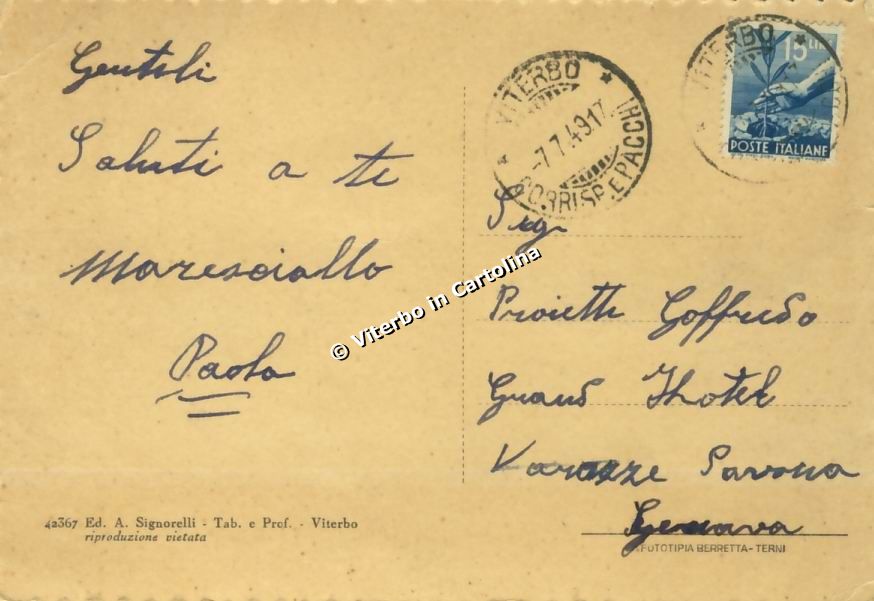 Gentili
Saluti a te
Maresciallo
Paola
42367 Ed. A. Signorelli - Tab. e Prof. - Viterbo
riproduzione vietata
© Viterbo in Cartolina
VITERBO
-7.7.49.17
CORRISP. E PACCHI
VITERBO
15 LIRE
POSTE ITALIANE
Sig.
Proietti Goffredo
Grand Hotel
Varazze Savona
Genova
FOTOTIPIA BERRETTA - TERNI